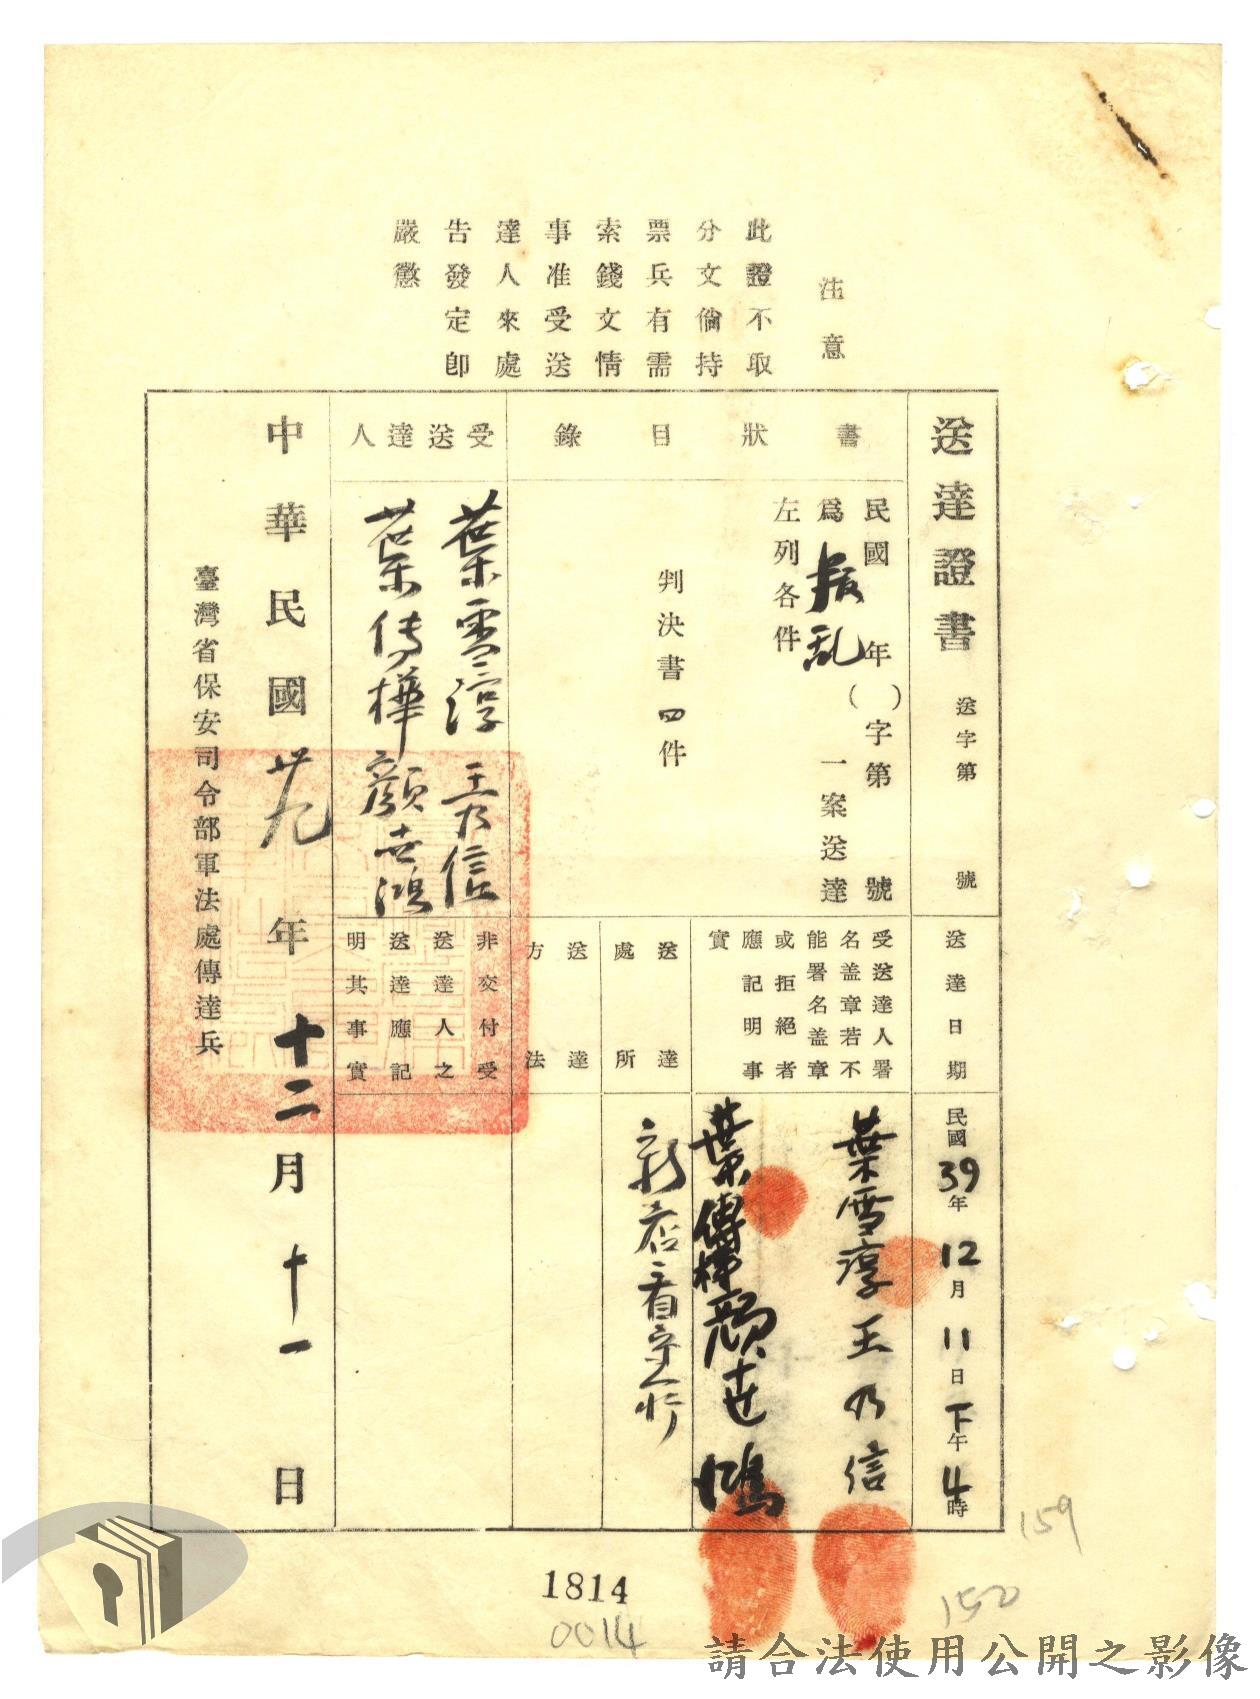 注意
此證不取
分文倘持
票兵有需
索錢文情
事准受送
達人來處
告發定卽
嚴懲
送達證書 送字第 號
書狀目錄
民國 年( )字第 號
為叛乱一案送達
左列各件
判決書四件
受送達人
葉雪淳 王乃信
葉傳樺 顏世鴻
中華民國卅九年十二月十一日
臺灣省保安司令部軍法處傳達兵
送達日期
民國39年12月11日下午4時
受送達人署
名盖章若不
能署名盖章
或拒絕者
應記明事
實
葉雪淳王乃信
葉傳樺顏世鴻
送達
處所
新店看守所
送達
方法
非交付受
送達人之
送達應記
明其事實
159
150
1814
0014
請合法使用公開之影像